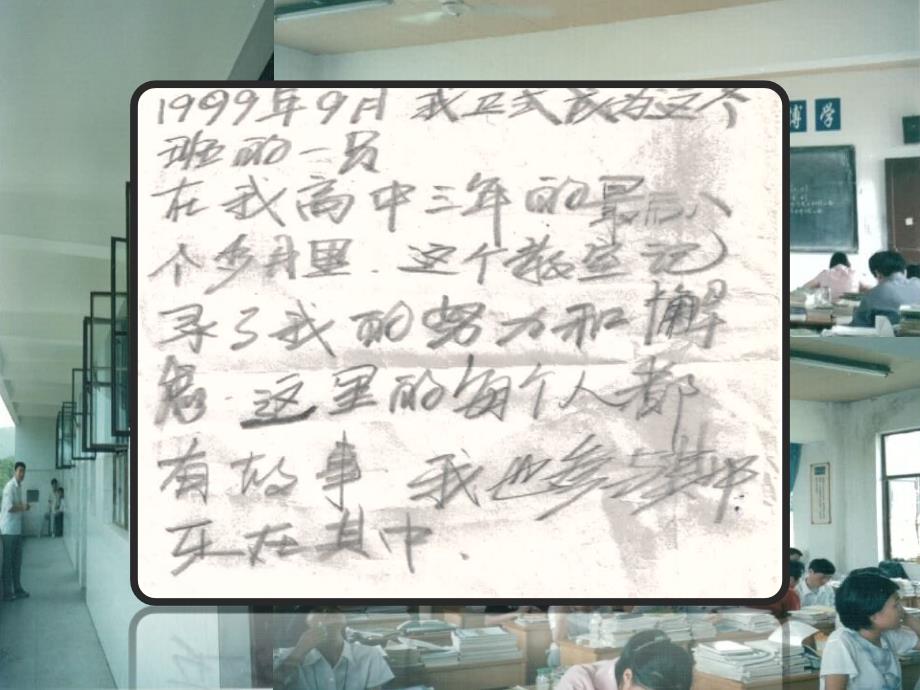 1999年9月 我正式成为这个
班的一员
在我高中三年的最后八
个多月里.这个教室记
录了我的努力和懈
怠.这里的每个人都
有故事 我也参与其中
乐在其中.
博学